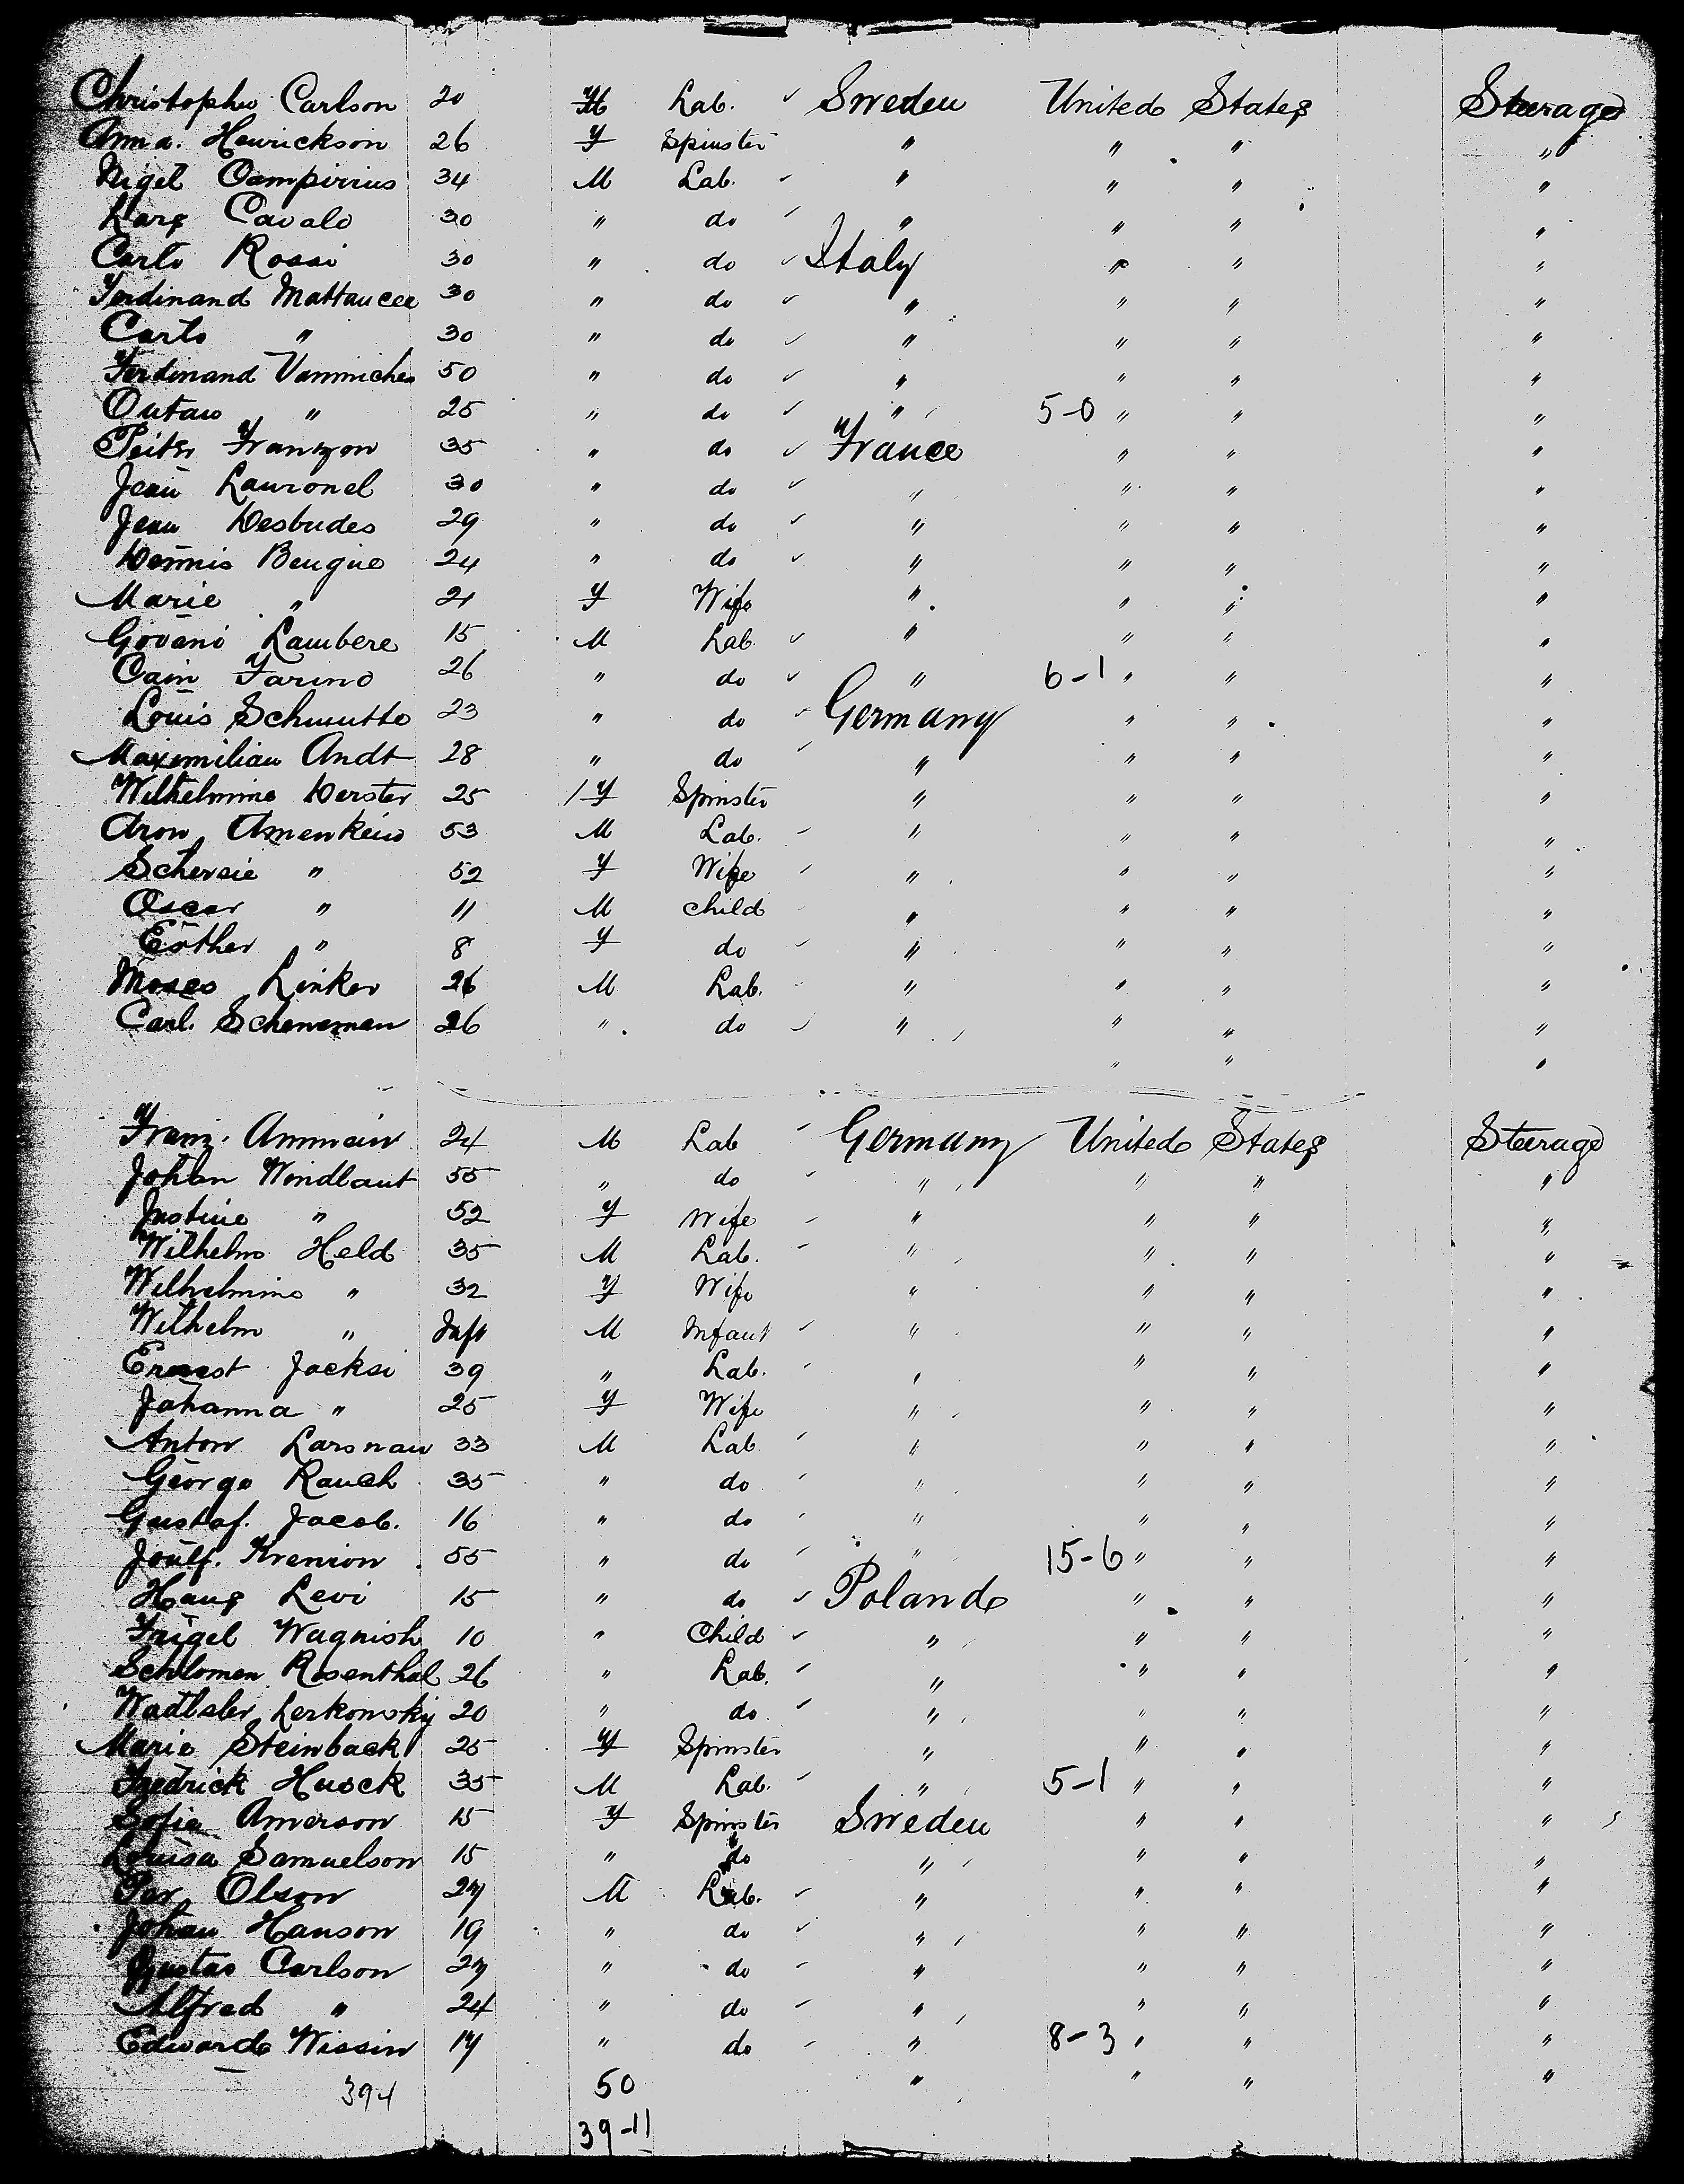 Christopher Carlson 20 M Lab. ✓ Sweden United States Steerage
Anna. Henrickson 26 F Spinster " " " "
Nigel Oampirius 34 M Lab. " " " "
Lars Cavalo 30 " do " " " "
Carlo Rossi 30 " do ✓ Italy " " "
Ferdinand Mattaucee 30 " do ✓ " " " "
Carlo " 30 " do ✓ " " " "
Ferdinand Vanmichea 50 " do ✓ " " " "
" 25 " do ✓ " 5-0 " " "
Peiter Franzon 35 " do ✓ France " " "
Jean Lauronel 30 " do ✓ " " " "
Jean Desbudes 29 " do ✓ " " " "
Dennis Beugue 24 " do ✓ " " " "
Marie " 21 F Wife " " " "
Govano Lambere 15 M Lab. ✓ " " " "
Cain Farino 26 " do ✓ " 6-1 " " "
Louis Schmutte 23 " do Germany " " "
Maximilian Andt 28 " do " " " "
Wilhelmine Derster 25 F Spinster " " " "
Aron Amenkein 53 M Lab. " " " "
Schersie " 52 F Wife " " " "
Oscar " 11 M child " " " "
Esther " 8 F do " " " "
Moses Linker 26 M Lab. " " " "
Carl. Scheneman 26 " do " " " "
" " "
Franz. Ammain 24 M Lab Germany United States Steerage
Johan Windlaut 55 " do " " " "
Justine " 52 F Wife " " " "
Wilhelm Held 35 M Lab. " " " "
Wilhelmine " 32 F Wife " " " "
Wilhelm " Inft M Infant " " " "
Ernest Jacksi 39 " Lab. " " " "
Johanna " 25 F Wife " " " "
Anton Larsnau 33 M Lab " " " "
George Rauch 35 " do " " " "
Gustaf. Jacob. 16 " do " " " "
Krenion 55 " do " 15-6 " " "
Hans Levi 15 " do ✓ Poland " " "
Feigel Wagnish 10 " Child ✓ " " " "
Schlomen Rosenthal 26 " Lab. " " " "
Lerkowsky 20 " do " " " "
Marie Steinback 25 F Spinster " " " "
Fredrick Husck 35 M Lab. " 5-1 " " "
Sofia Amerson 15 F Spinster Sweden " " "
Louisa Samuelson 15 " do " " " "
Per Olson 27 M Lab. " " " "
Johan Hanson 19 " do ✓ " " " "
Gustav Carlson 27 " do " " " "
Alfred " 24 " do " " " "
Edward Wissin 17 " do " 8-3 " " "
394 50 " " " "
39-11